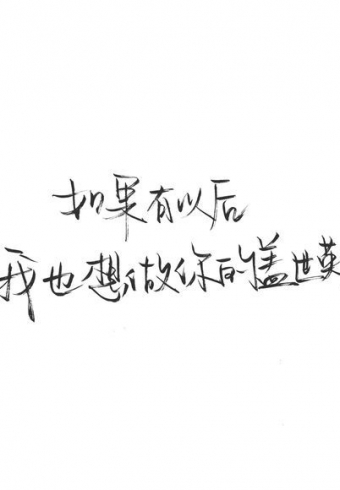 如果有以后
我也想做你的盖世英